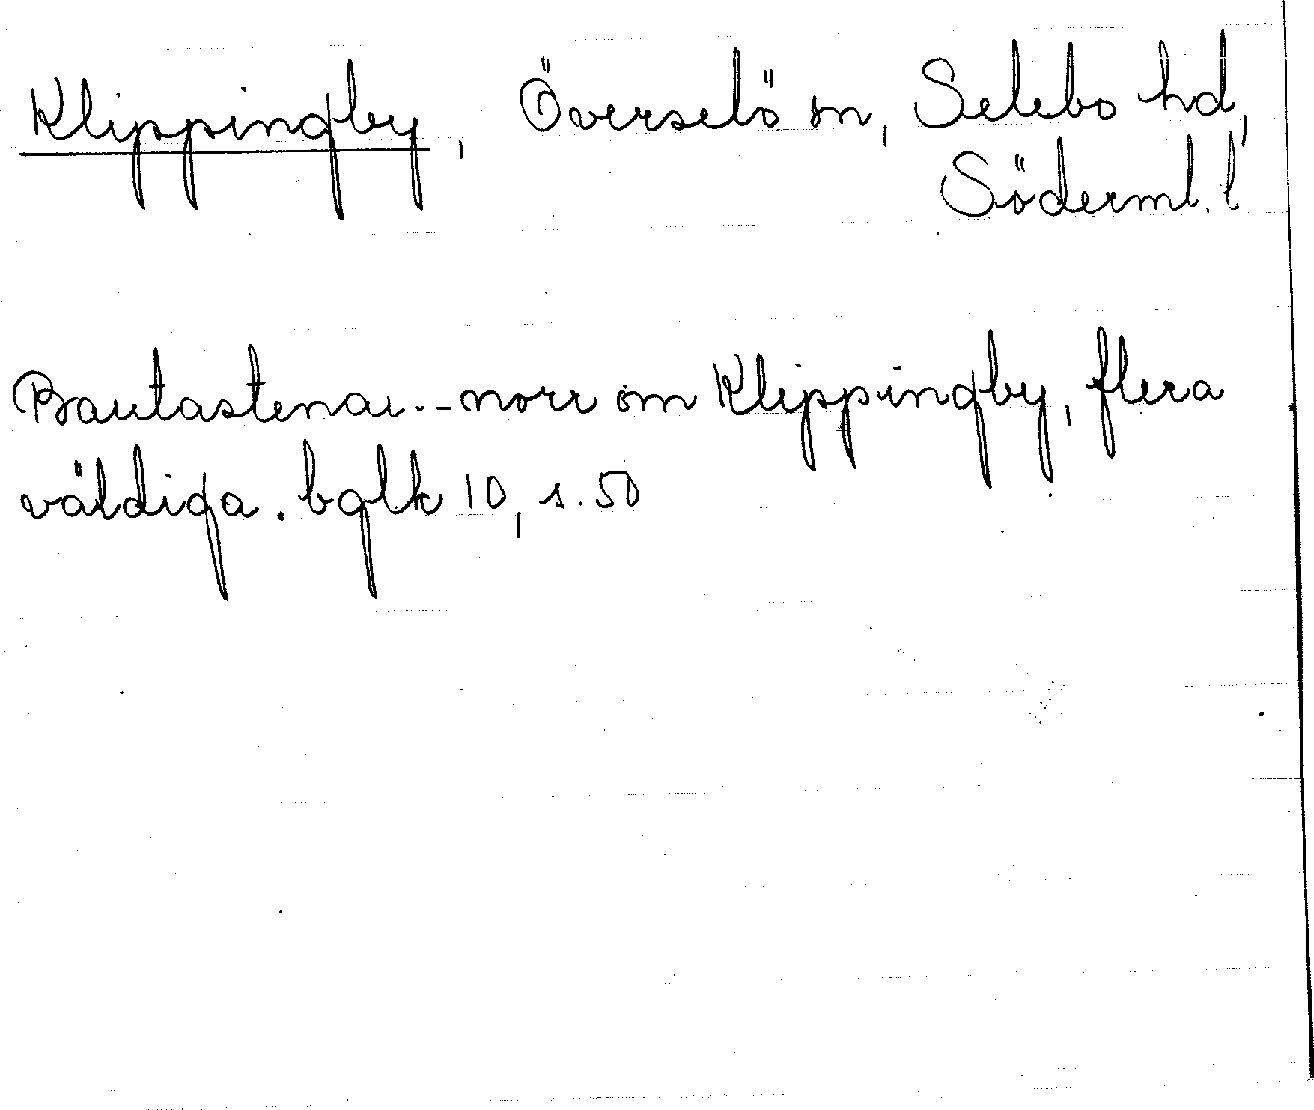 Klippingby, Överselö sn, Selebo hd,
Söderml. l
Bautastenar.. norr om Klippingby, flera
väldiga. bglk 10, s. 50